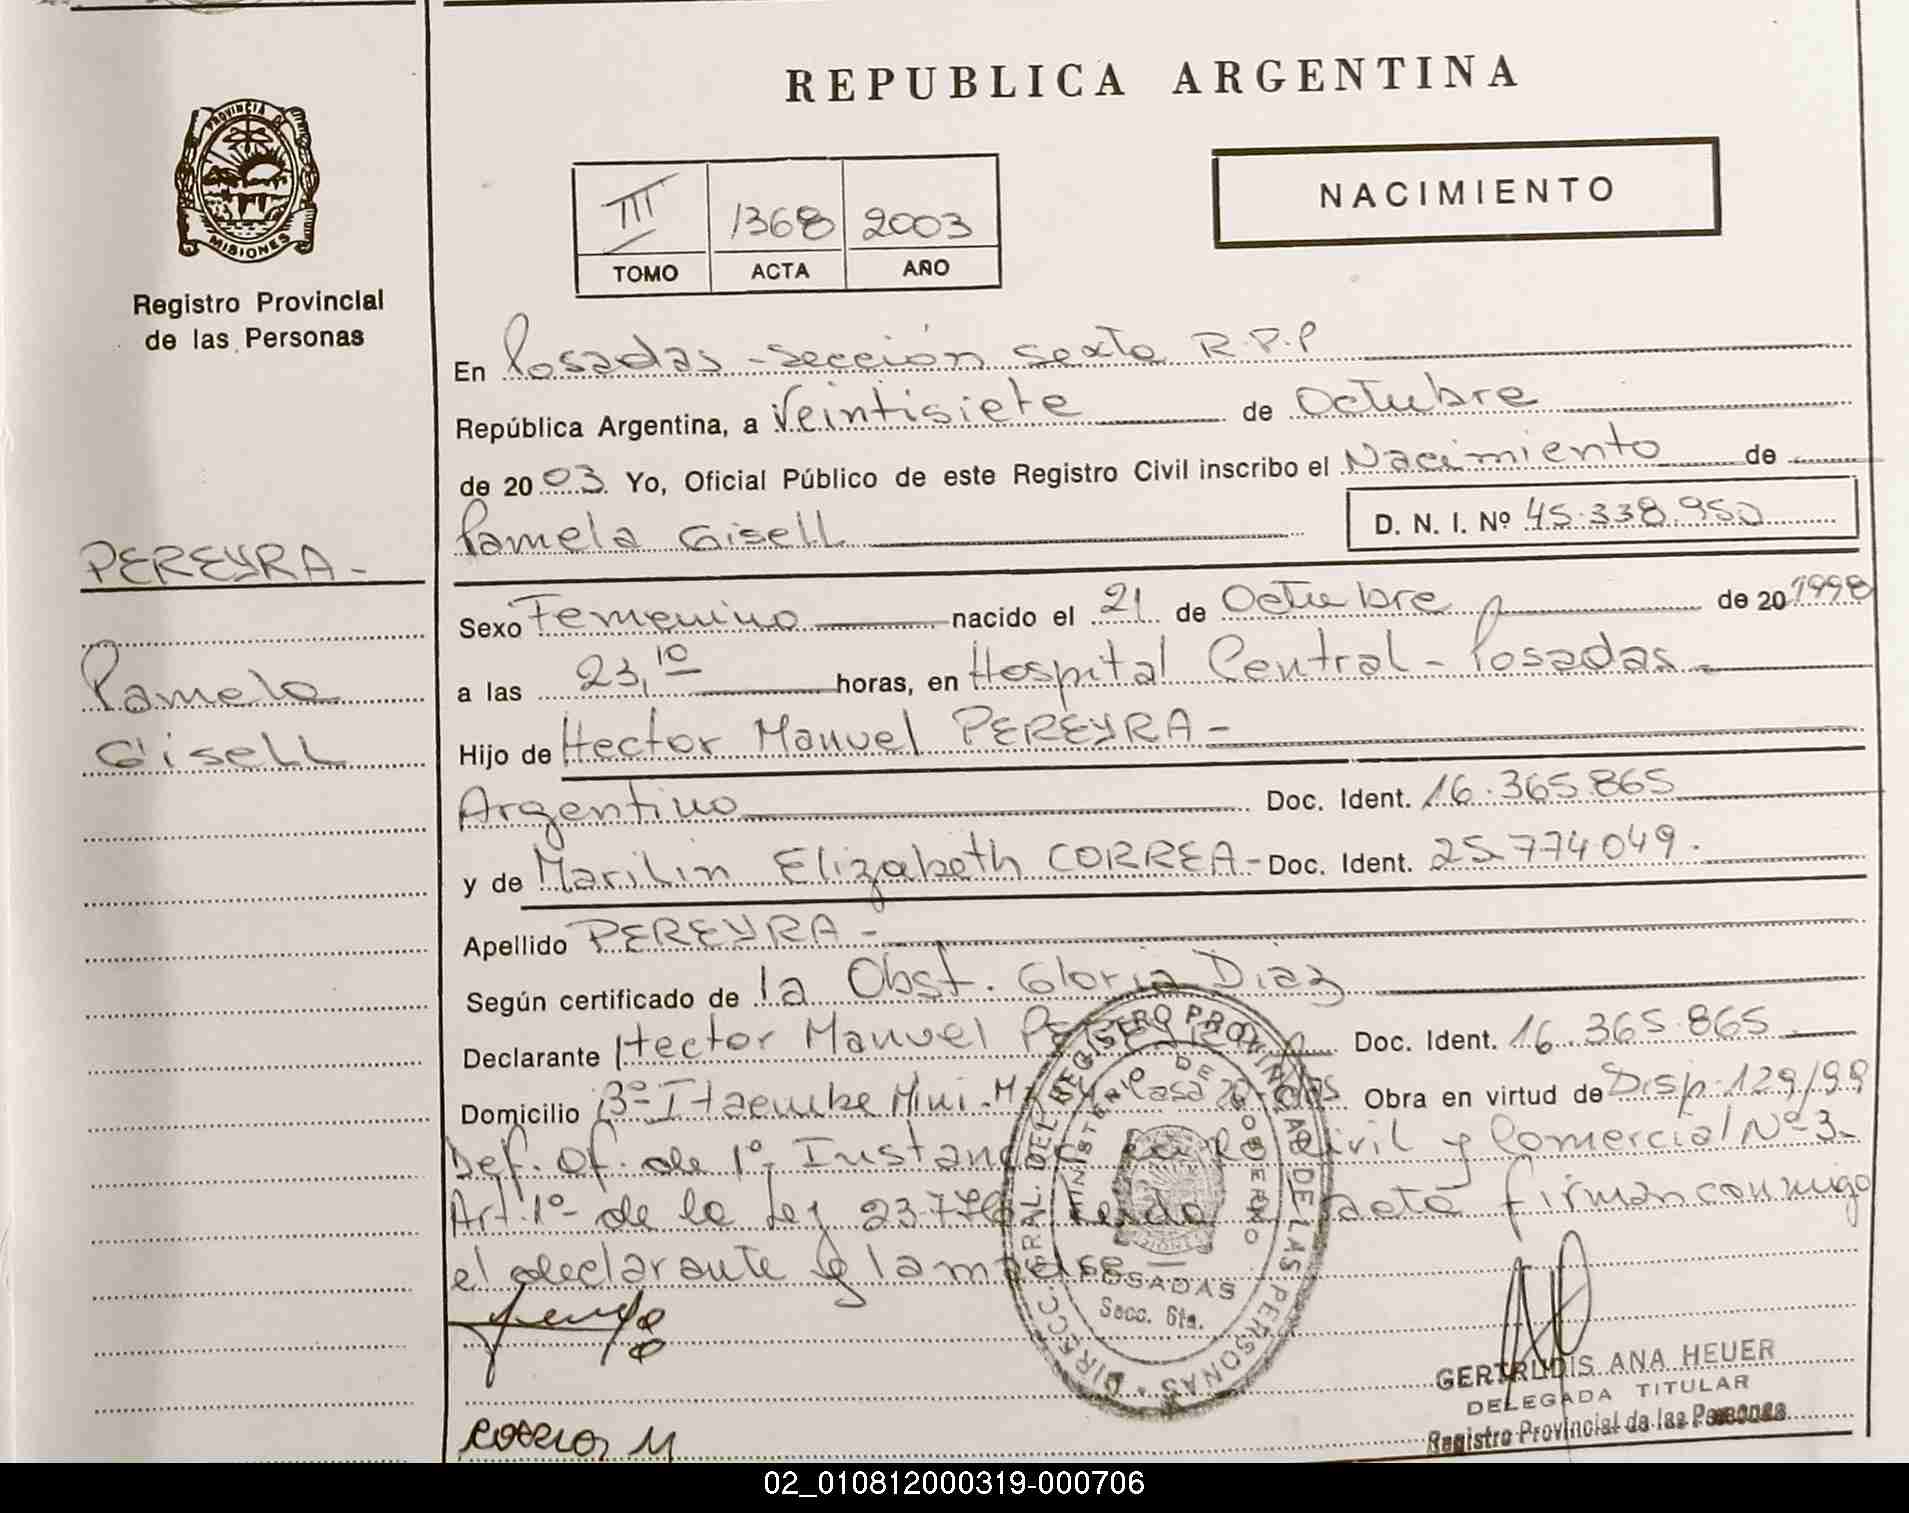 REPUBLICA ARGENTINA
PROVINCIA DE
MISIONES
Registro Provincial
de las Personas
NACIMIENTO
III 1368 2003
TOMO ACTA AÑO
En Posadas - sección sexta R.P.P
República Argentina, a Veintisiete de Octubre
de 2003. Yo, Oficial Público de este Registro Civil inscribo el Nacimiento de
Pamela Gisell
D. N. I. Nº 45.338.950
PEREYRA -
Pamela
Gisell
Sexo Femenino nacido el 21 de Octubre de 20 1998
a las 23,10 horas, en Hospital Central - Posadas -
Hijo de Hector Manuel PEREYRA -
Argentino Doc. Ident. 16.365.865
y de Marilin Elizabeth CORREA - Doc. Ident. 25.774.049.
Apellido PEREYRA -
Según certificado de la Obst. Gloria Diaz
Declarante Hector Manuel Doc. Ident. 16.365.865
Domicilio Bº Itaembe Mini - Casa Obra en virtud de Disp. 129/99
Def. Of. de 1º Instancia Civil y Comercial Nº 3.
Art. 1º de la Ley acta firman conmigo
el declarante y la madre
DIRECC. GRAL. DEL REGISTRO PROVINCIAL DE LAS PERSONAS
MINISTERIO DE GOBIERNO
POSADAS
Secc. 6ta.
GERTRUDIS ANA HEUER
DELEGADA TITULAR
Registro Provincial de las Personas
02_010812000319-000706